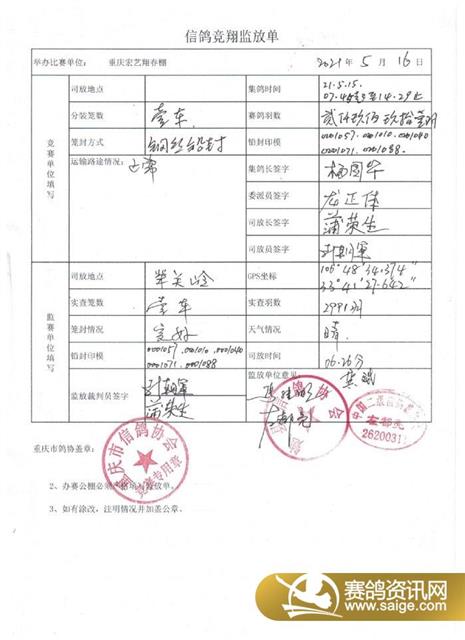 信鸽竞翔监放单
举办比赛单位: 重庆宏艺翔春棚 2021年 5 月 16 日
竞赛单位填写
司放地点 集鸽时间 21.5.15.
分装笼数 壹车 赛鸽羽数
笼封方式 钢丝铅封 铅封印模 0001057.0001010.0001040
0001071.0001088.
运输路途情况: 正常 集鸽长签字 杨国华
委派员签字 龙正体
司放长签字 蒲荣生
司放员签字
监赛单位填写
司放地点 GPS坐标 106°48′34.374″
33°41′27.642″
实查笼数 壹车 实查羽数 2991羽
笼封情况 完好 天气情况 晴
铅封印模 0001057.0001010.0001040
0001071.0001088
司放时间 06.26分
监放裁判员签字 蒲荣生
监放单位意见:
重庆市鸽协盖章:
重庆市信鸽协会
竞赛专用章
2、办赛公棚必须严格填写释放单。
3、如有涂改,注明情况并加盖公章。
赛鸽资讯网
www.saige.com